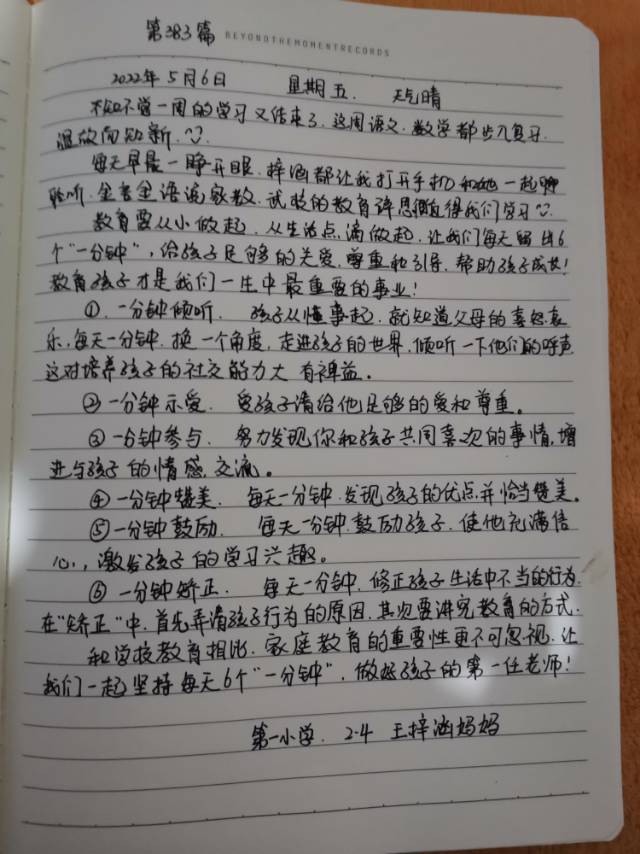 第383篇 BEYONDTHEMOMENTRECORDS
2022年5月6日 星期五. 天气晴
不知不觉一周的学习又结束了.这周语文.数学都步入复习.
温故而知新.
每天早晨一睁开眼.梓涵都让我打开手机和她一起聆
听.金香金语说家教.武校的教育谆思值得我们学习
教育要从小做起.从生活点滴做起.让我们每天留出6
个"一分钟",给孩子足够的关爱.尊重和引导.帮助孩子成长!
教育孩子才是我们一生中最重要的事业!
①.一分钟倾听. 孩子从懂事起.就知道父母的喜怒哀
乐,每天一分钟.换一个角度,走进孩子的世界.倾听一下他们的呼声
这对培养孩子的社交能力大有裨益。
②一分钟示爱. 爱孩子请给他足够的爱和尊重。
③一分钟参与. 努力发现你和孩子共同喜欢的事情,增
进与孩子的情感.交流。
④一分钟赞美. 每天一分钟.发现孩子的优点并恰当赞美。
⑤一分钟鼓励. 每天一分钟.鼓励孩子.使他充满信
心,激发孩子的学习兴趣。
⑥一分钟矫正. 每天一分钟.修正孩子生活中不当的行为.
在"矫正"中.首先弄清孩子行为的原因.其次要讲究教育的方式.
和学校教育相比.家庭教育的重要性更不可忽视.让
我们一起坚持每天6个"一分钟".做好孩子的第一任老师!
第一小学. 2.4 王梓涵妈妈